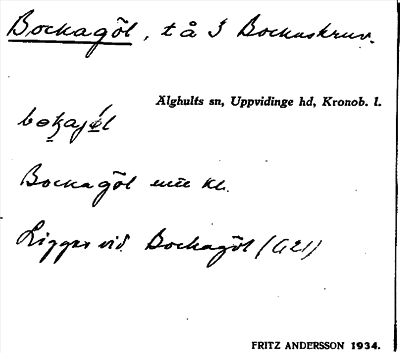 Bockagöl, tå 3 Bockaskruv.
Älghults sn, Uppvidinge hd, Kronob. l.
Bockagöl enl kl.
Ligger vid Bockagöl (a21)
FRITZ ANDERSSON 1934.